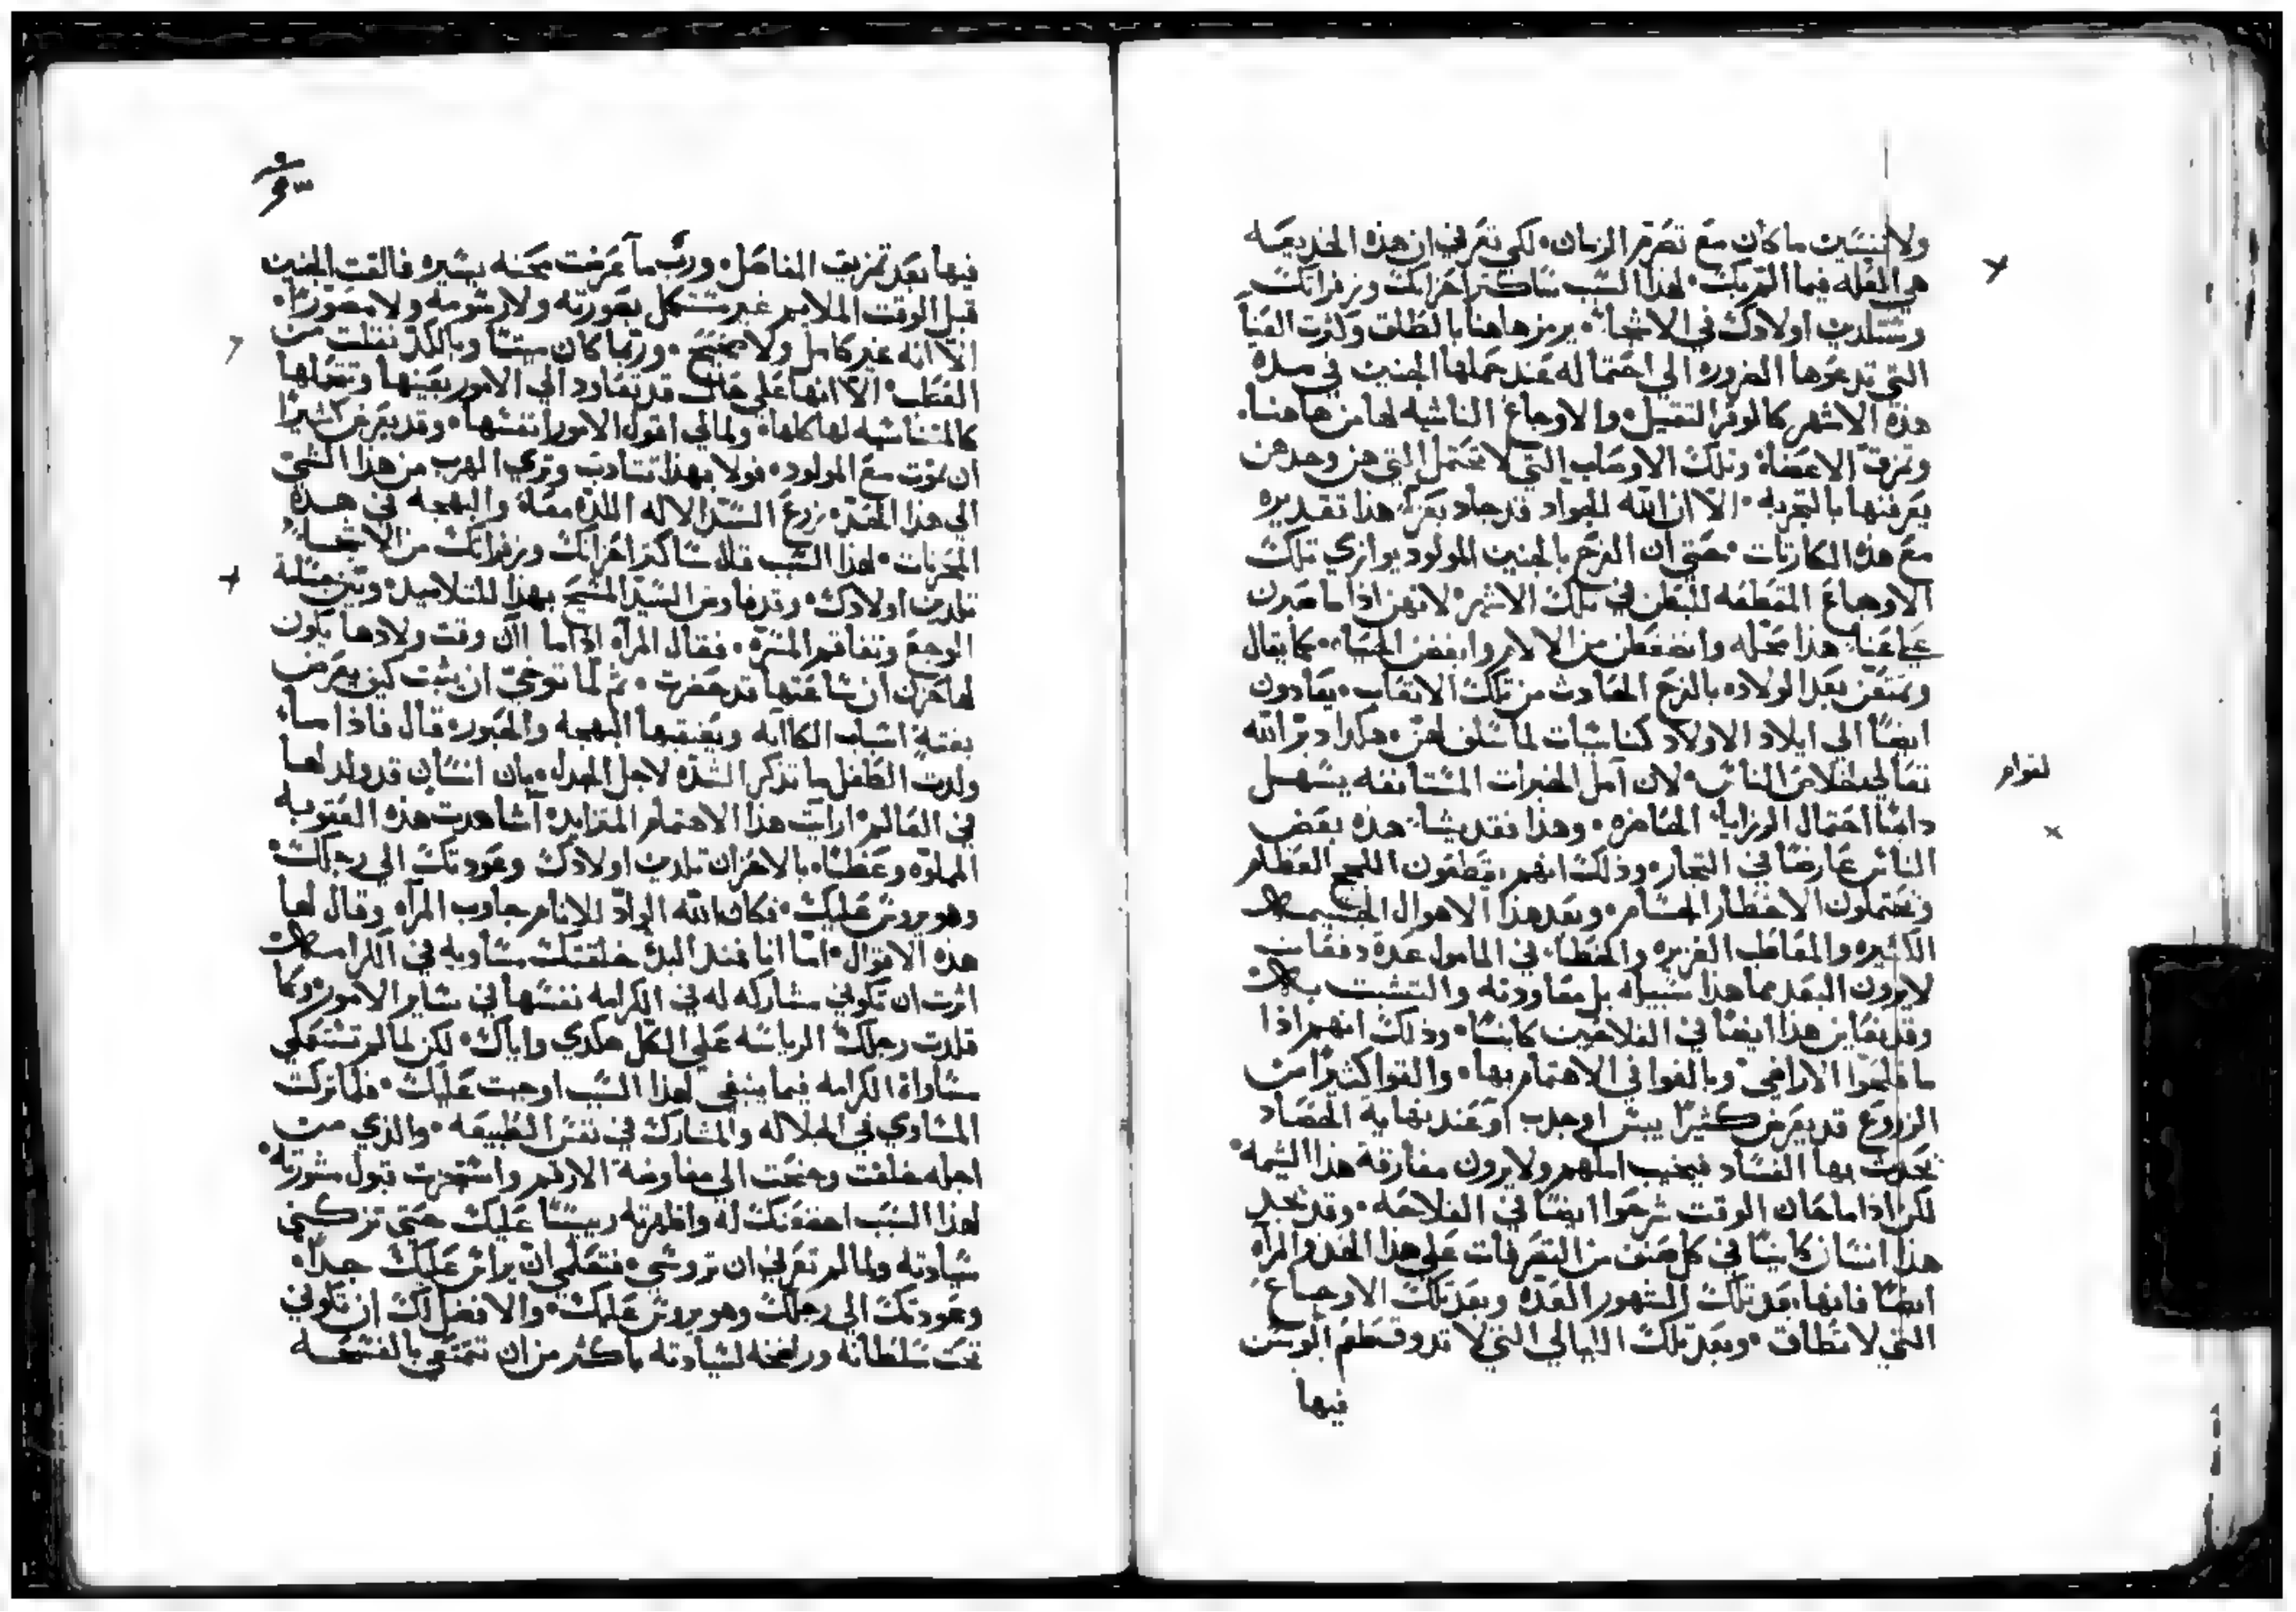 ولا تنسين ما كان مع تصرم الزمان. لكي تعرفي ان هذه الخديعه
هي العله فيما المّ بك. لهذا السبب ساكثر احزانك وزفراتك
وستلدين اولادك في الاشجان. يرمز هاهنا بالطلق وكثرت العنا
التي تدعوها الضروره الي احتماله عند حملها الجنين في مدة
هذه الاشهر كالوقر الثقيل. والاوجاع الناشيه لها من هاهنا.
وتمزق الاعضاء وتلك الاوصاب التي لا تحتمل التي هن وحدهن
يعرفنها بالتجربه. الا ان الله الجواد قد جاد بعزآء هذا تقديره
مع هذه الكارثات. حتي ان الفرح بالجنين المولود يوازي تلك
الاوجاع المقطعه للبطن في تلك الاشهر. لانهن اذا ما صبرن
علي عنا هذا محله وانضغطن من الالام وابغضن الحياه. كما يقال
وتمتعن بعد الولاده بالفرح الحادث من تلك الاتعاب. يعاودن
ايضًا الي ايلاد الاولاد كناسيات لما سلف لهن. هكذا دبر الله
تعالي خلاص الناس. لان امل الخيرات المستانفه يسهل
لقوام
دايمًا احتمال الرزايا الحاضره. وهذا فقد يشاهده بعض
الناس عارضًا في التجار. وذلك انهم يقطعون اللجج العظام
ويحتملون الاخطار الجسام. وبعد هذا الاهوال الجسيمات
الكثيره والمعاطب الغزيره والخطا في المامول عدة دفعات
لا يرون البعد مما هذا سبيله بل معاودته والتشبث به
وقد يعاين هذا ايضًا في الفلاحين كاينًا. وذلك انهم اذا
ما فلحوا الاراضي وبالغوا في الاهتمام بها. والقوا كثيرًا من
الزروع قد يعرض كثيرًا يبس او جدب او عند نهاية الحصاد
يحدث بها الفساد فيخيب املهم ولا يرون مفارقة هذا الشيمه.
لكن اذا ما حان الوقت شرعوا ايضًا في الفلاحه. وقد يجد
هذا انسان كاينًا في كل صنف من التصرفات علي هذا الحذو والمرآه
ايضًا فانها بعد تلك الشهور العدة وبعد تلك الاوجاع
التي لا تطاق. وبعد تلك الليالي التي لا تذوق طعم الوسن
فيها
فيها بعد تمزيق المفاصل. ورب ما عرضت محنه يسيره فالقت الجنين
قبل الوقت الملايم غير متشكل بصورته ولا رسومه ولا مصورًا.
الا انه غير كامل ولا صحيح. وربما كان ميتًا وبالكد نفلت من
العطب. الا انها علي حال قد تعاود الي الامور بعينها وتتحملها
كالمتناسيه لها كلها. ولمالي اقول الامور انفسها. وقد يعرض كثيرًا
ان تموت مع المولود. فولا بهذا تتادب وتري الهرب من هذا الشي
الي هذا الحد. زرع السيد الاله اللذه معًا والبهجه في هذه
المحزنات. لهذا السبب قال ساكثر احزانك وزفراتك من الاشجان
تلدين اولادك. وقد فاوض السيد المسيح بهذا للتلاميذ. وبين جملة
الوجع وتفاقم المسره. فقال المرآه اذا ما آن وقت ولادها يكون
لها حزن ان ساعتها قد حضرت. ثم لما توخي ان يثبت كيف يعرض
بغتة اسباب الكاآبه ويعقبها البهجه والحبور. قال فاذا ما
ولدت الطفل ما تذكر الشده لاجل الجدل. بان انسان قد ولد لها
في العالم. ارايت هذا الاهتمام المتزايد آشاهدت هذه العقوبه
المملوه وعظًا. بالاحزان تلدين اولادك وعودتك الي رجلك.
وهو يروس عليك. فكان الله الوادّ للانام جاوب المرآه وقال لها
هذه الاقوال. امّا انا فمند البدء خلقتك مساويه في الكرامه
اثرت ان تكوني مشاركه له في الكرامه نفسها في ساير الامور. وكما
قلدت رجلك الرياسه علي الكل هكذي واياك. لكن لما لم تستعملي
مساواة الكرامه فيما ينبغي لهذا السبب اوجبت عليك. فلما تركت
المساوي في الجلاله والمشارك في نفس الطبيعه. والذي من
اجله خلقت وجنحت الي مفاوضة الارقم واستجزت قبول مشورته.
لهذا السبب اخضعتك له واظهرته رييسًا عليك حتي تزكني
سيادته ولما لم تعرفي ان تروسي. فتعلمي ان يراس عليك جيدًا.
وعودتك الي رجلك وهو يروس عليك. والافضل لك ان تكوني
تحت سلطانه وراضخه لسيادته باكثر من ان تتمتعي بالفسحه